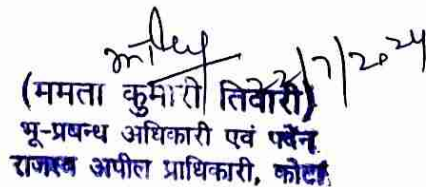 2/7/2024
(ममता कुमारी तिवारी)
भू-प्रबन्ध अधिकारी एवं पदेन
राजस्व अपील प्राधिकारी, कोटा